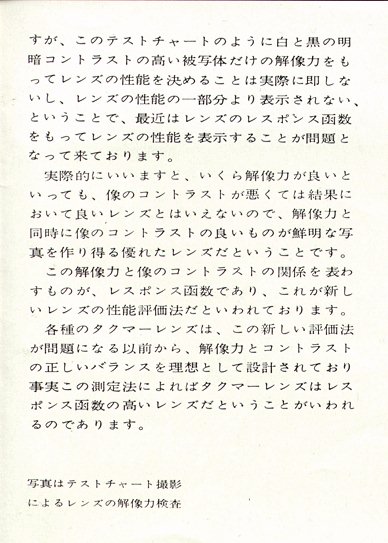 すが、このテストチャートのように白と黒の明
暗コントラストの高い被写体だけの解像力をも
ってレンズの性能を決めることは実際に即しな
いし、レンズの性能の一部分より表示されない、
ということで、最近はレンズのレスポンス函数
をもってレンズの性能を表示することが問題と
なって来ております。
実際的にいいますと、いくら解像力が良いと
いっても、像のコントラストが悪くては結果に
おいて良いレンズとはいえないので、解像力と
同時に像のコントラストの良いものが鮮明な写
真を作り得る優れたレンズだということです。
この解像力と像のコントラストの関係を表わ
すものが、レスポンス函数であり、これが新し
いレンズの性能評価法だといわれております。
各種のタクマーレンズは、この新しい評価法
が問題になる以前から、解像力とコントラスト
の正しいバランスを理想として設計されており
事実この測定法によればタクマーレンズはレス
ポンス函数の高いレンズだということがいわれ
るのであります。
写真はテストチャート撮影
によるレンズの解像力検査